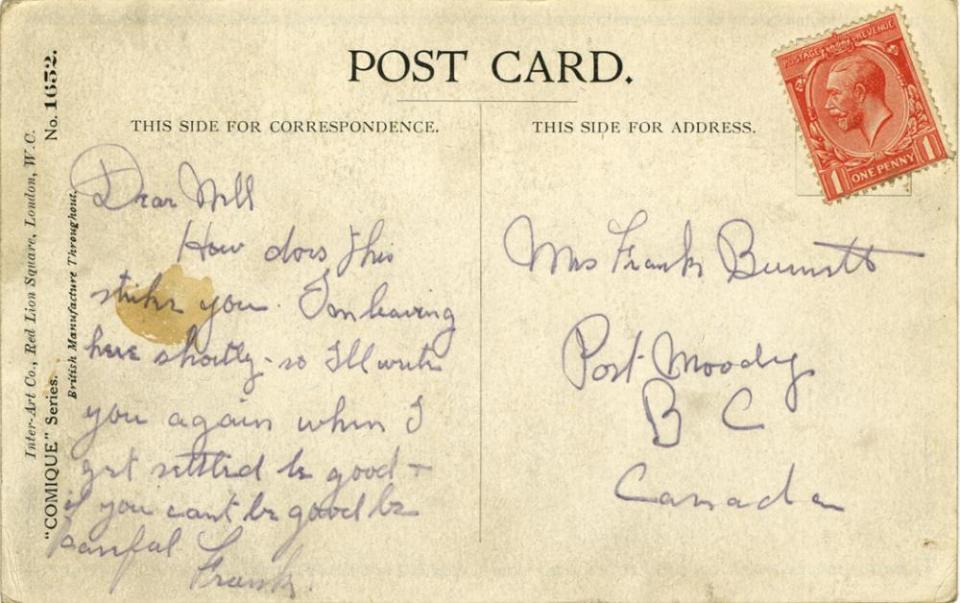 POST CARD.
THIS SIDE FOR CORRESPONDENCE.
THIS SIDE FOR ADDRESS.
POSTAGE REVENUE
1 ONE PENNY 1
Inter-Art Co., Red Lion Square, London, W.C.
"COMIQUE" Series.
No. 1652.
British Manufacture Throughout.
Dear Nell
How does this
strike you. I'm leaving
here shortly - so I'll write
you again when I
get settled be good +
if you cant be good be
careful
Frank.
Mrs Frank Burnett
Port Moody
B C
Canada